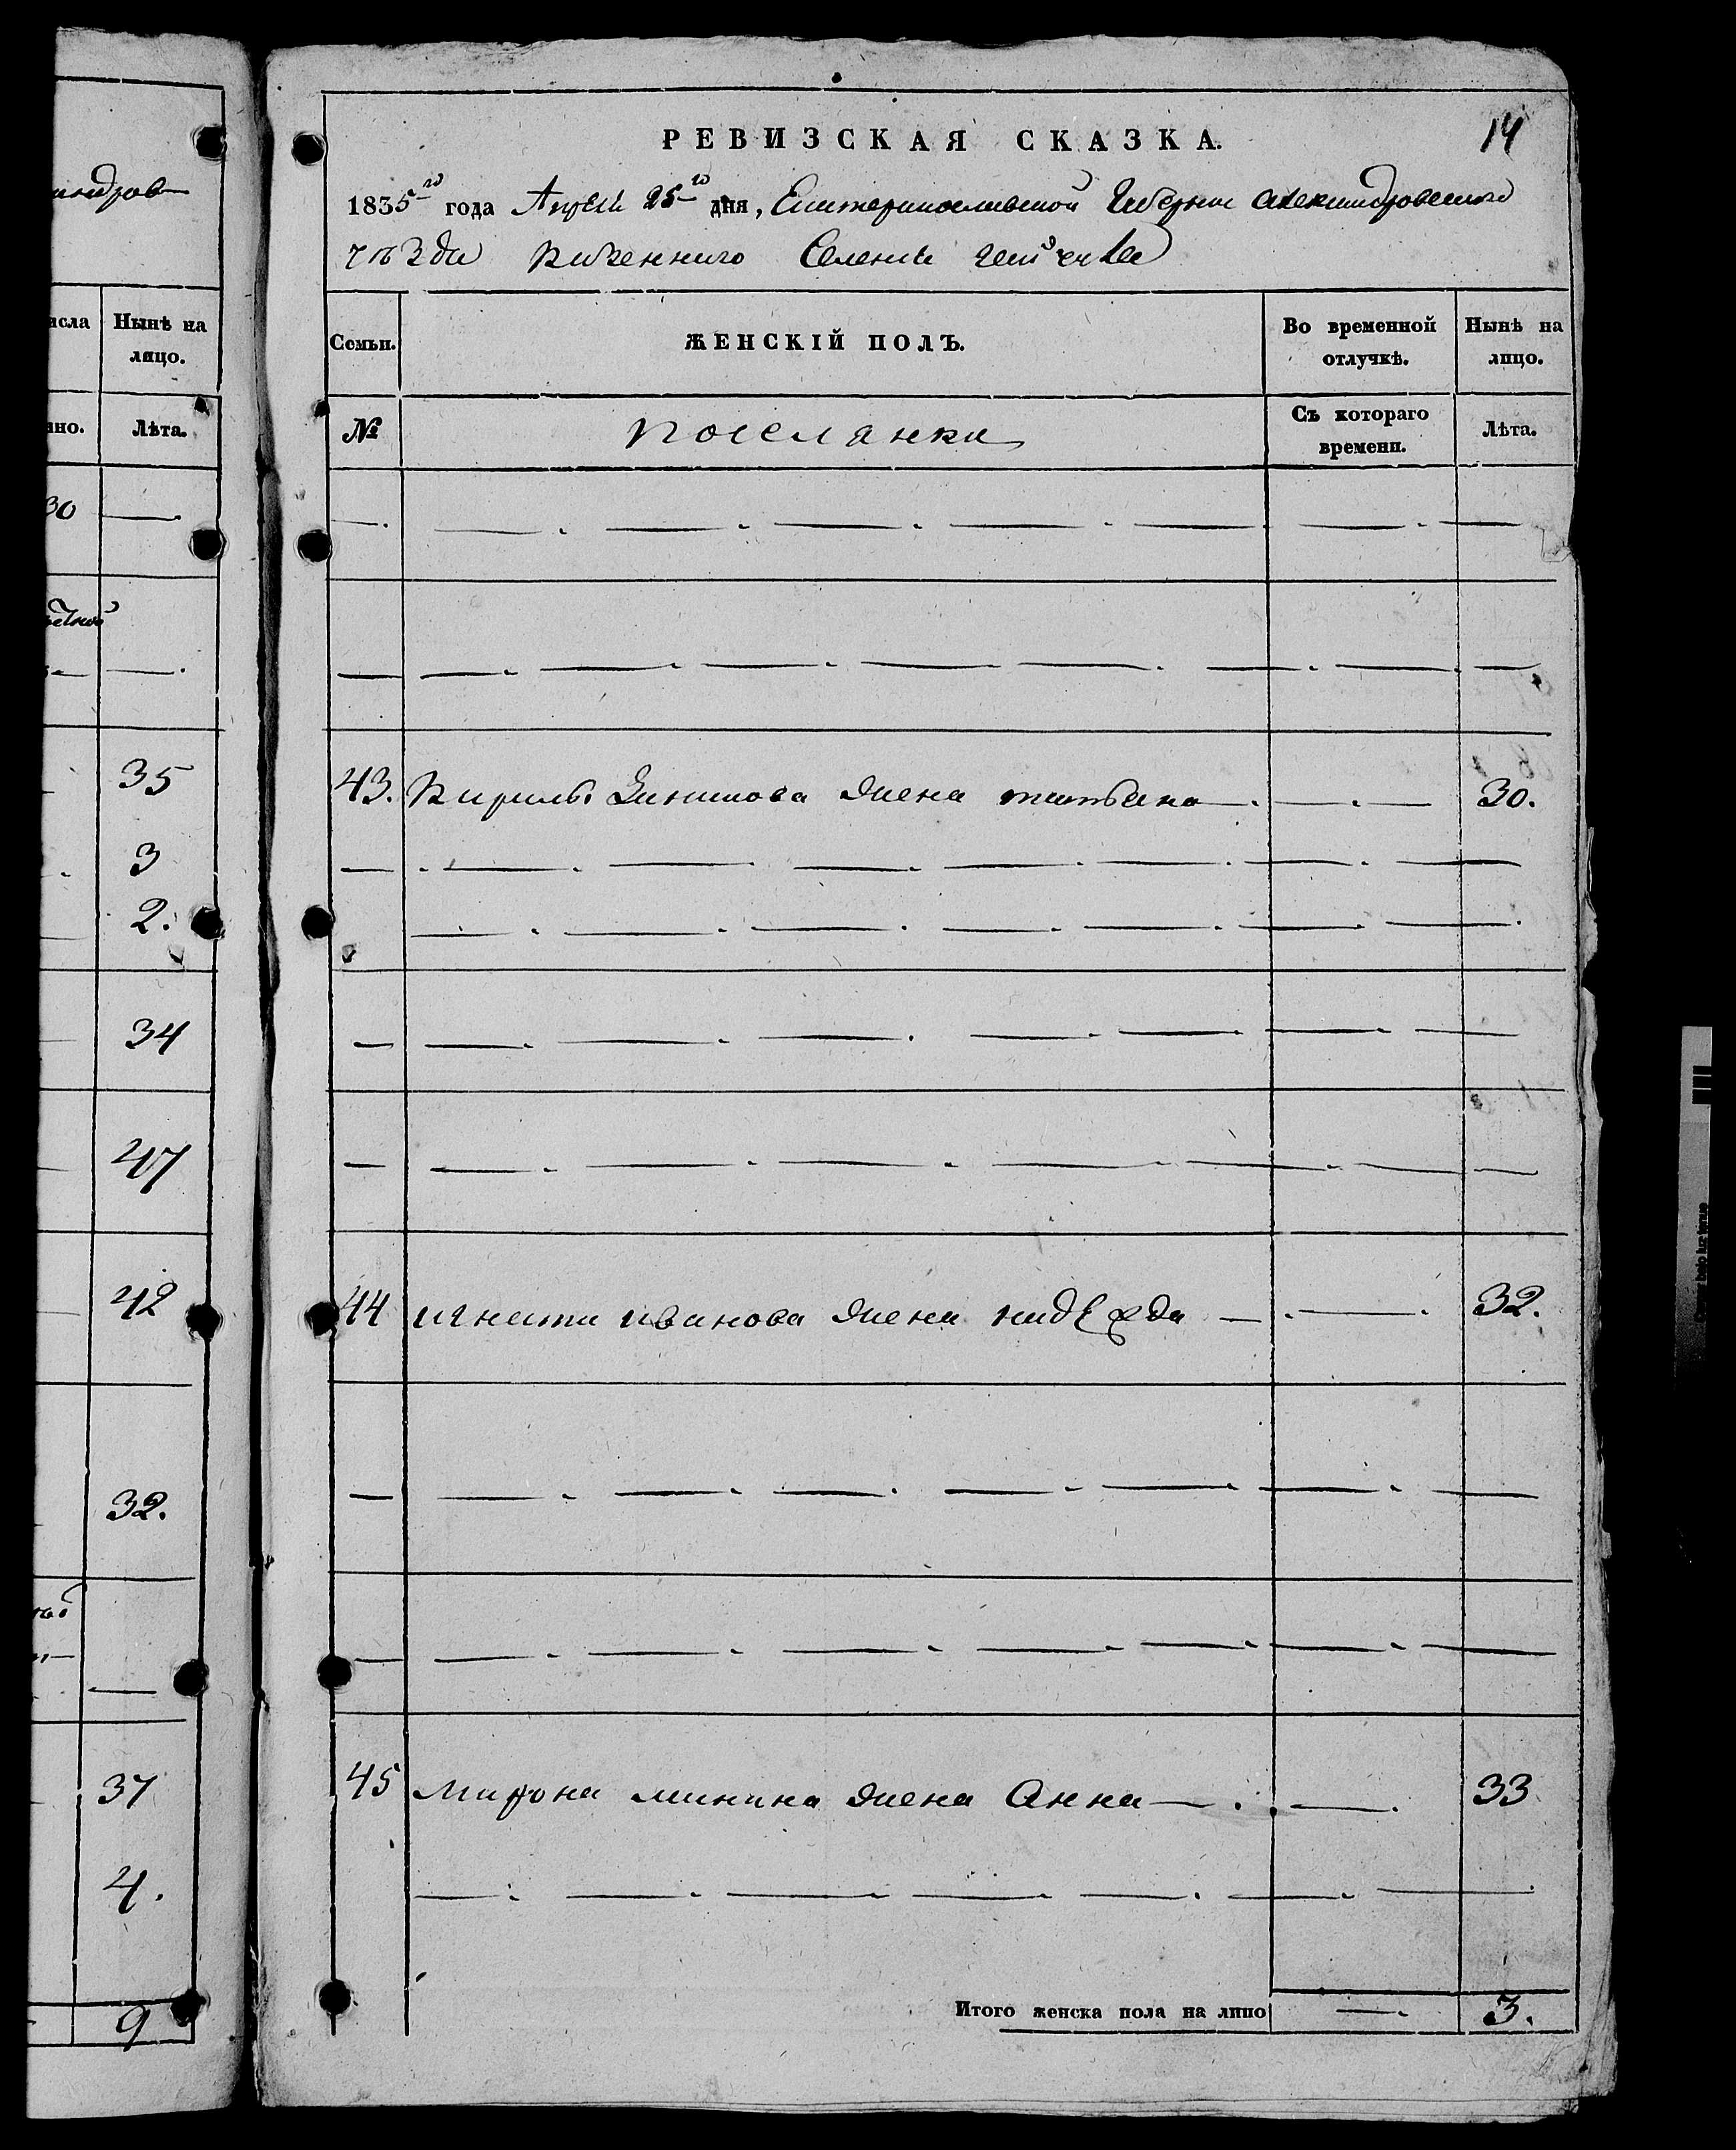 андров
исла
Нынѣ на
лицо.
нно.
Лѣта.
30
35
3
2.
34
47
42
32.
37
4.
9
14
РЕВИЗСКАЯ СКАЗКА.
1835го года Апреля 25го дня, Екатеринославской Губернии александровского
уѣзда казенного Селения
Семьи.
ЖЕНСКІЙ ПОЛЪ.
Во временной
отлучкѣ.
Нынѣ на
лицо.
№
поселянки
Съ котораго
времени.
Лѣта.
43. Кирилы жена татьяна 30.
44 игната иванова жена надежда 32.
45 мирона минина жена Анна 33
Итого женска пола на лицо 3.